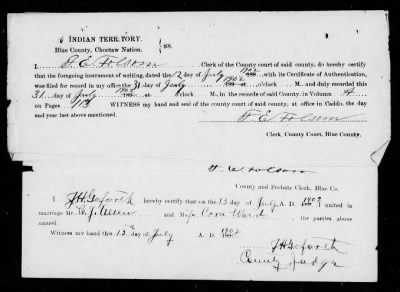 INDIAN TERRITORY.
Blue County, Choctaw Nation. } ss.
I T. E. Folsom Clerk of the County court of said county, do hereby certify
that the foregoing instrument of writing, dated the 12 day of July 1902 with its Certificate of Authentication,
was filed for record in my office the 31 day of July 1902 at o'clock M., and duly recorded this
31 day of July 1902 at o'clock M., in the records of said County, in Volumn A
on Pages 113 WITNESS my hand and seal of the county court of said county, at office in Caddo, the day
and year last above mentioned.
T. E. Folsom
Clerk, County Court, Blue County.
T. E. Folsom
County and Probate Clerk, Blue Co.
I hereby certify that on the 13 day of July A. D. 1902 I united in
marriage Mr. and Miss Cora Ward the parties above
named.
Witness my hand this 13th day of July A. D. 1902
County Judge